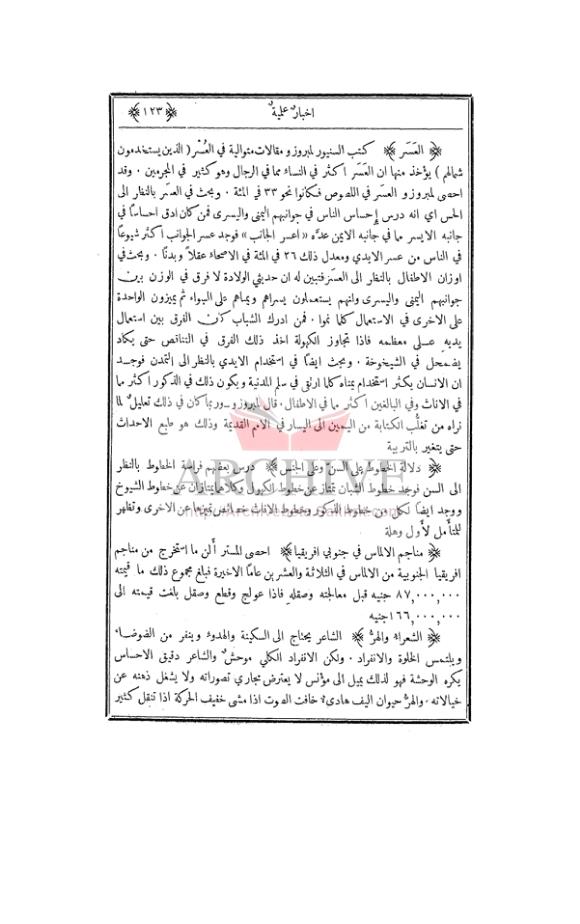 اخبار علمية ﴿١٢٣﴾
﴿ العَسَر ﴾ كتب السنيور لمبروزو مقالات متوالية في العُسْر ( الذين يستخدمون
شمالهم ) يؤخذ منها ان العَسَر اكثر في النساء مما في الرجال وهو كثير في المجرمين ٠ وقد
احصى لمبروزو العسر في اللصوص فكانوا نحو ٣٣ في المئة ٠ وبحث في العسر بالنظر الى
الحس اي انه درس إحساس الناس في جوانبهم اليمنى واليسرى فمن كان ادق احساسًا في
جانبه الايسر مما في جانبه الايمن عدَّه « اعسر الجانب » فوجد عسر الجوانب اكثر شيوعًا
في الناس من عسر الايدي ومعدل ذلك ٢٦ في المئة في الاصحاء عقلاً وبدنًا ٠ وبحث في
اوزان الاطفال بالنظر الى العسر فتبين له ان حديثي الولادة لا فرق في الوزن بين
جوانبهم اليمنى واليسرى وانهم يستعملون يسراهم ويمناهم على السواء ثم يميزون الواحدة
على الاخرى في الاستعمال كلما نموا ٠ فمن ادرك الشباب كان الفرق بين استعمال
يديه على معظمه فاذا تجاوز الكهولة اخذ ذلك الفرق في التناقص حتى يكاد
يضمحل في الشيخوخة ٠ وبحث ايضًا في استخدام الايدي بالنظر الى التمدن فوجد
ان الانسان يكثر استخدام يمناه كلما ارتقى في سلم المدنية ويكون ذلك في الذكور اكثر مما
في الاناث وفي البالغين اكثر مما في الاطفال ٠ قال لمبروزو وربما كان في ذلك تعليلٌ لما
نراه من تغلُّب الكتابة من اليمين الى اليسار في الامم القديمة وذلك هو طبع الاحداث
حتى يتغير بالتربية
﴿ دلالة الخطوط على السن وعلى الجنس ﴾ درس بعضهم فراسة الخطوط بالنظر
الى السن فوجد خطوط الشبان تمتاز عن خطوط الكهول وكلاهما يمتازان عن خطوط الشيوخ
ووجد ايضًا لكل من خطوط الذكور وخطوط الاناث خصائص تميزها عن الاخرى وتظهر
للمتأمل لأول وهلة
﴿ مناجم الالماس في جنوبي افريقيا ﴾ احصى المستر ألن ما استخرج من مناجم
افريقيا الجنوبية من الالماس في الثلاثة والعشرين عامًا الاخيرة فبلغ مجموع ذلك ما قيمته
٨٧,٠٠٠,٠٠٠ جنيه قبل معالجته وصقله فاذا عولج وقطع وصقل بلغت قيمته الى
١٦٦,٠٠٠,٠٠٠ جنيه
﴿ الشعراء والهرّ ﴾ الشاعر يحتاج الى السكينة والهدوء وينفر من الضوضاء
ويلتمس الخلوة والانفراد ٠ ولكن الانفراد الكلي موحشٌ والشاعر دقيق الاحساس
يكره الوحشة فهو لذلك يميل الى مؤنس لا يعترض مجاري تصوراته ولا يشغل ذهنه عن
خيالاته ٠ والهرّ حيوان اليف هادئ خافت الصوت اذا مشى خفيف الحركة اذا تنقل كثير
ARCHIVE